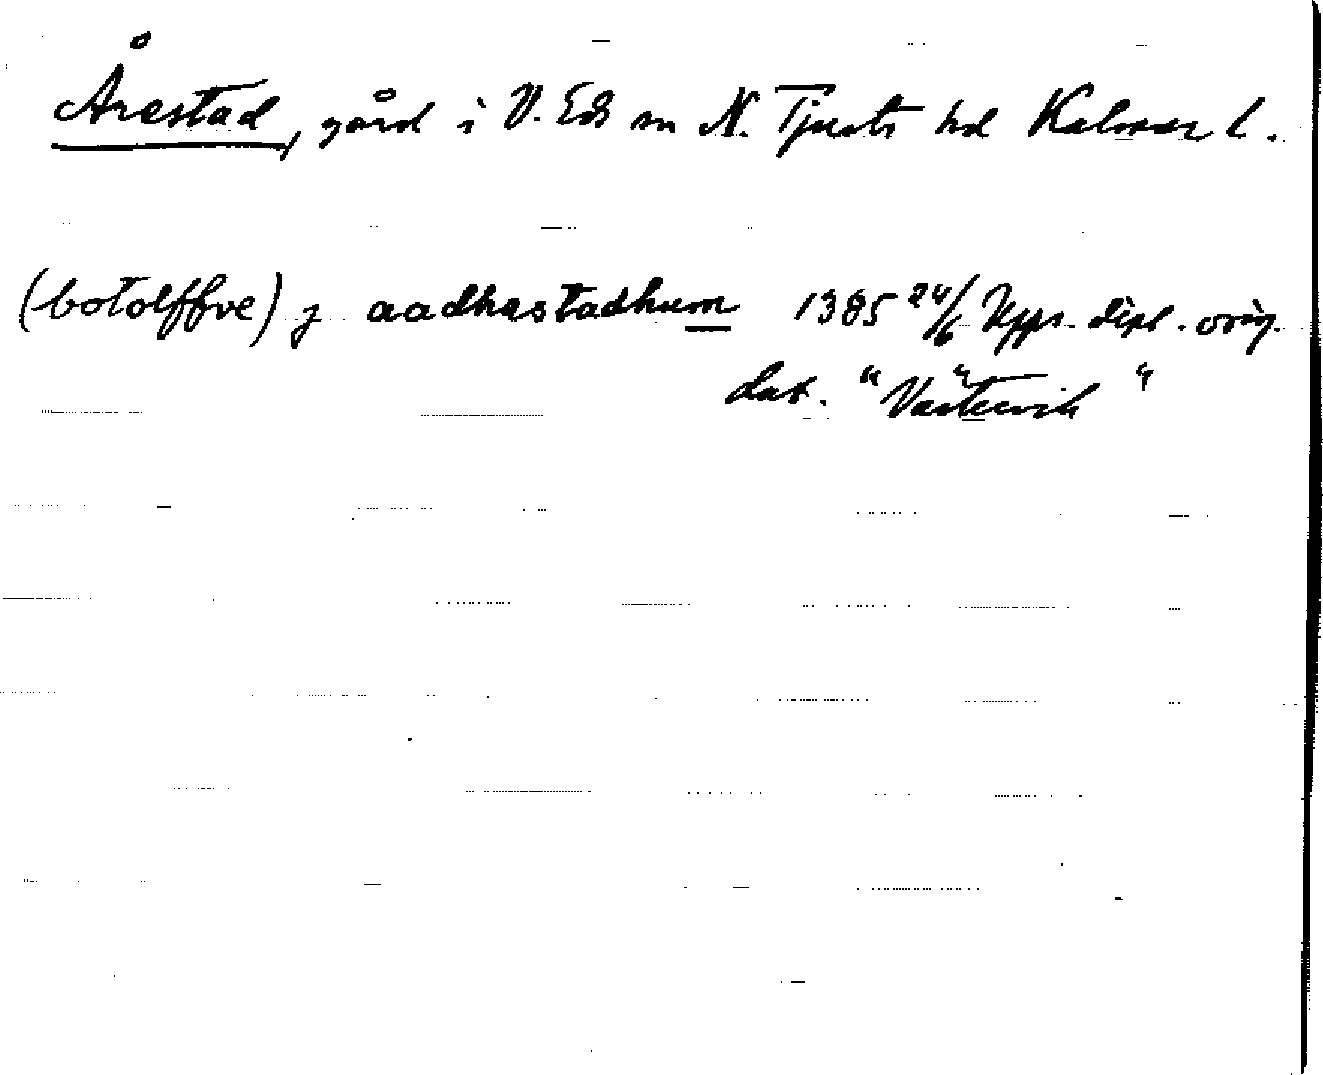 Årestad, gård i V. Eds sn N. Tjusts hd Kalmar l.
(botolffve) j aadhastadhum 1385 24/6 Upps. dipl. orig.
dat. "Västervik"